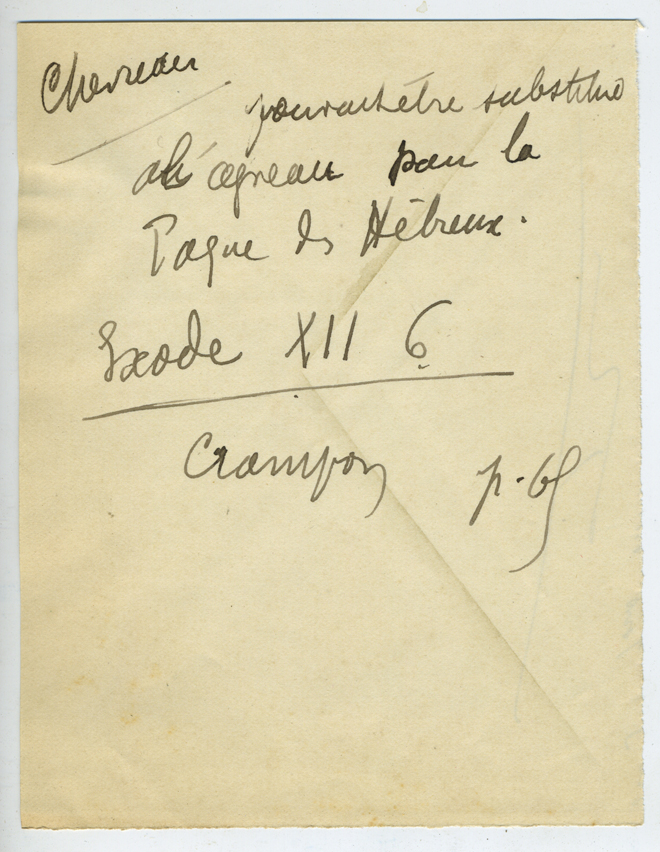 Chevreau
pouvait être substitué
à l'agneau pour la
Pâque des Hébreux.
Exode XII 6
Crampon p. 65